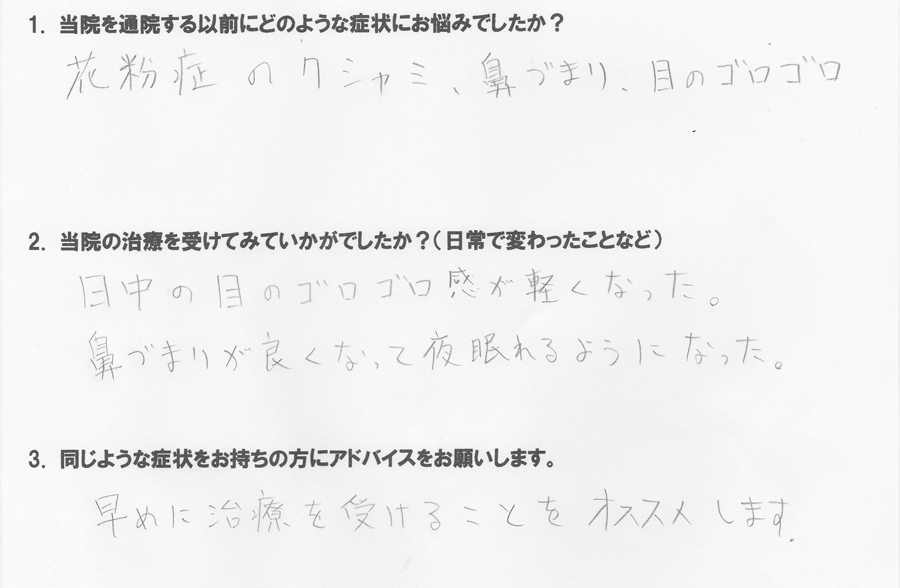 1. 当院を通院する以前にどのような症状にお悩みでしたか？
花粉症のクシャミ、鼻づまり、目のゴロゴロ
2. 当院の治療を受けてみていかがでしたか？（日常で変わったことなど）
日中の目のゴロゴロ感が軽くなった。
鼻づまりが良くなって夜眠れるようになった。
3. 同じような症状をお持ちの方にアドバイスをお願いします。
早めに治療を受けることをオススメします。